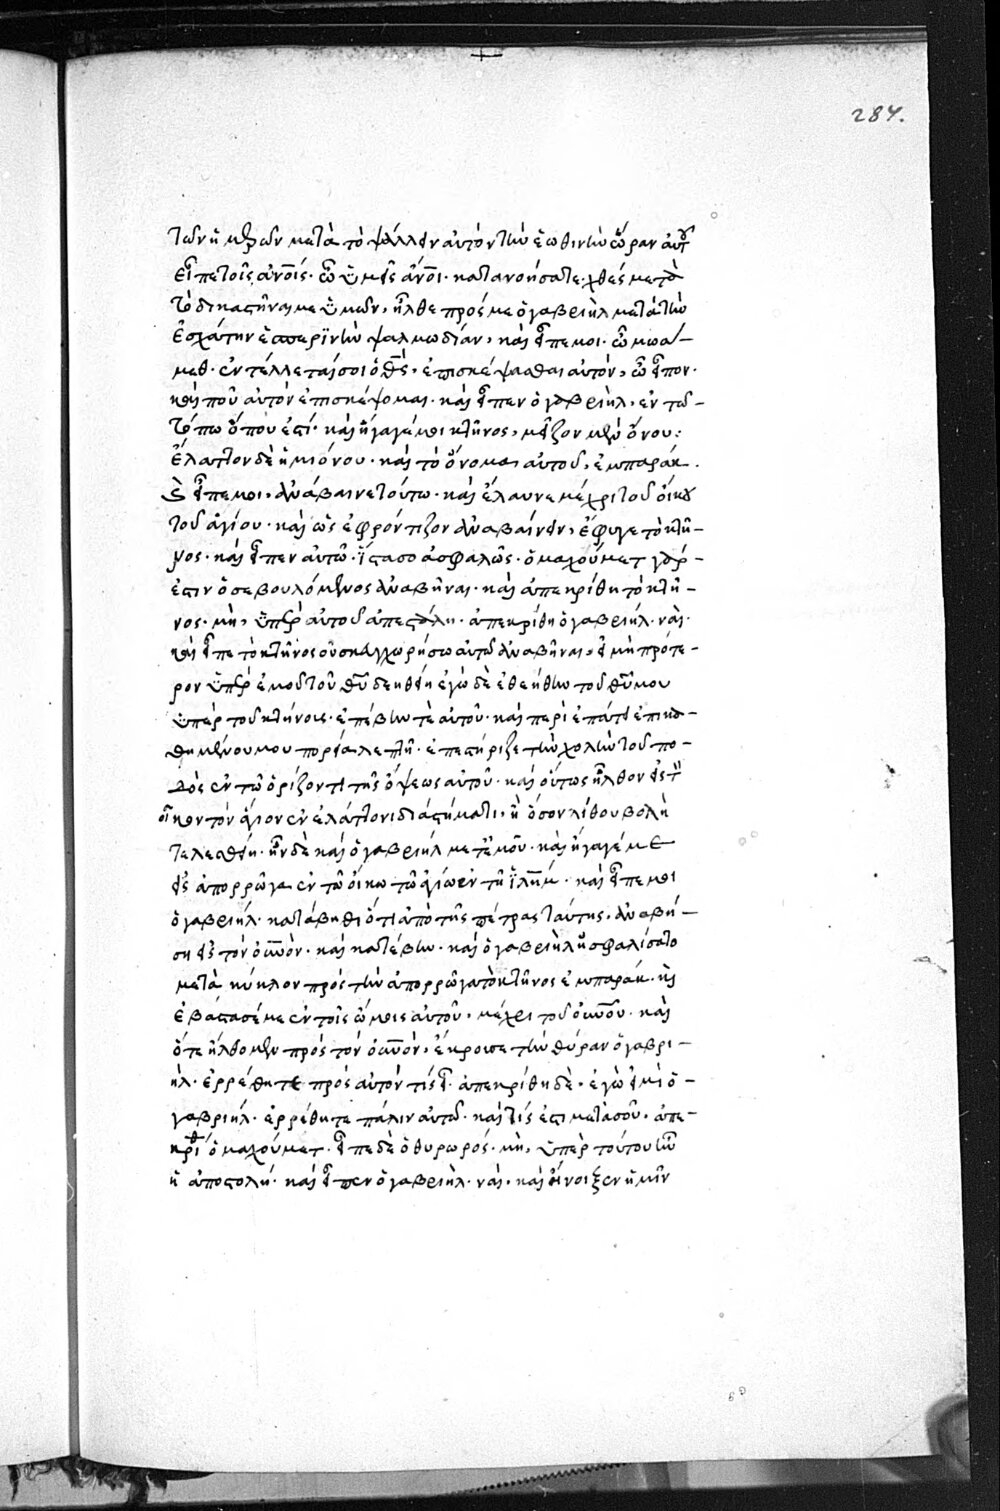 284.
των ἢ μειζων μετὰ τὸ ψάλλειν αὐτὸν τὴν ἑωθινὴν ὥραν αὐτοῦ
εἶπε τοῖς ἀνοῖς· ὦ ὑμεῖς ἄνοι· κατανοήσατε· χθές μετὰ
τὸ δικασθῆναι με ὑμῶν, ἦλθε πρός με ὁ γαβριὴλ μετὰ τὴν
ἐσχάτην ἑσπερϊνὴν ψαλμωδίαν, καὶ εἶπε μοι· ὦ μωα-
μεθ· ἐντέλλεταί σοι ὁ θς, ἐπισκέψασθαι αὐτὸν, ὧ εἶπον·
καὶ ποῦ αὐτὸν ἐπισκέψομαι· καὶ εἶπεν ὁ γαβριὴλ, ἐν τῶ-
τόπω ὅπου ἐστί· καὶ ἤγαγέ μοι κτῆνος, μεῖζον μὲν ὄνου:
ἔλαττον δὲ ἡμιόνου· καὶ τὸ ὄνομα αὐτοῦ, ἐμπαράκ.
καὶ εἶπε μοι, ἀνάβαινε τούτω· καὶ ἔλαυνε μέχρι τοῦ οἴκου
τοῦ ἁγίου· καὶ ὡς ἐφρόντιζον ἀναβαίνειν, ἔφυγε τὸ κτῆ-
νος· καὶ εἶπεν αὐτῶ· ἵστασο ἀσφαλῶς· ὁ μαχούμετ γάρ-
ἐστιν ὅς σε βουλόμενος ἀναβῆναι· καὶ ἀπεκρίθη τὸ κτῆ-
νος· μὴ, ὑπὲρ αὐτοῦ ἀπεστάλη· ἀπεκρίθη ὁ γαβριήλ· ναί·
καὶ εἶπε τὸ κτῆνος οὐ συγχωρήσω αὐτῶ ἀναβῆναι, εἰ μὴ πρότε-
ρον ὑπὲρ ἐμοῦ τοῦ θυ δεηθείη ἐγὼ δὲ ἐδεήθην τοῦ θυ μου
ὑπὲρ τοῦ κτήνους· ἐπέβην τὲ αὐτοῦ· καὶ
ποδὸς ἐν τῶ ὁρίζοντι τῆς ὄψεως αὐτοῦ· καὶ οὕτως ἦλθον εἰς τὸν
οἶκον τὸν ἅγιον ἐν ἐλάττονι διαστήματι, ἢ ὅσον λίθου βολὴ
τελεσθείη· ἦν δὲ καὶ ὁ γαβριὴλ μετ' ἐμοῦ· καὶ ἤγαγέ με
εἰς ἀπορρῶγα ἐν τῶ οἴκω τῶ ἁγίω ἐν τῆ ἱλημ· καὶ εἶπε μοι
ὁ γαβριήλ· κατάβηθι ὅτι ἀπὸ τῆς πέτρας ταύτης, ἀναβή-
ση εἰς τὸν οὐνὸν· καὶ κατέβην· καὶ ὁ γαβριὴλ ἠσφαλίσατο
μετὰ κύκλον πρὸς τὴν ἀπορρῶγα τὸ κτῆνος ἐμπαράκ· καὶ
ἐβάστασέ με ἐν τοῖς ὤμοις αὐτοῦ, μέχρι τοῦ οὐνοῦ· καὶ
ὅτε ἤλθομεν πρὸς τὸν οὐνὸν, ἔκρουσε τὴν θύραν ὁ γαβρι-
ήλ· ἐρρέθη τε πρὸς αὐτὸν τίς εἶ· ἀπεκρίθη δὲ· ἐγὼ εἰμὶ ὁ-
γαβριήλ· ἐρρέθη τε πάλιν αὐτῶ· καὶ τίς ἐστι μετὰ σοῦ, ἀπε-
κρίθη ὁ μαχούμετ· εἶπε δὲ ὁ θυρωρός· μὴ, ὑπὲρ τούτου ἦν
ἡ ἀποστολή· καὶ εἶπεν ὁ γαβριὴλ· ναί· καὶ ἤνοιξεν ἡμῖν